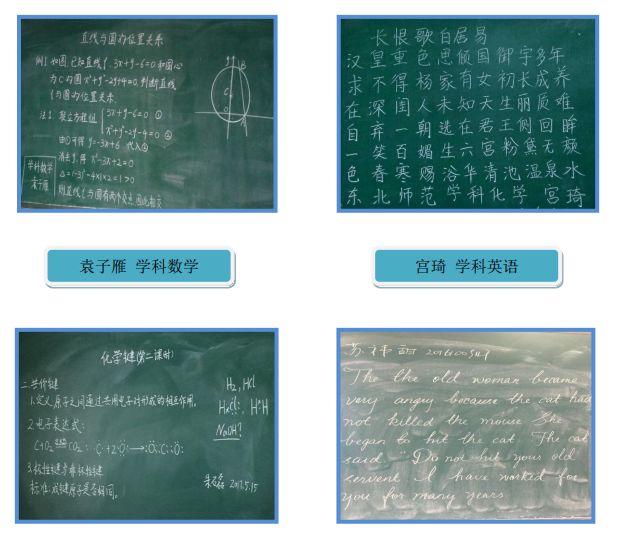 直线与圆的位置关系
例1 如图,已知直线l:3x+y-6=0和圆心
为C的圆x²+y²-2y-4=0,判断直线
l与圆的位置关系.
法1: 联立方程组 { 3x+y-6=0 ①
x²+y²-2y-4=0 ②
由①可得 y=-3x+6 代入②
消去y,得 x²-3x+2=0
△=(-3)²-4×1×2=1>0
则直线l与圆有两个交点,因此相交
学科数学
袁子雁
长恨歌白居易
汉皇重色思倾国御宇多年
求不得杨家有女初长成养
在深闺人未知天生丽质难
自弃一朝选在君王侧回眸
一笑百媚生六宫粉黛无颜
色春寒赐浴华清池温泉水
东北师范学科化学 宫琦
袁子雁 学科数学
宫琦 学科英语
化学键(第二课时)
二.共价键
1.定义:原子之间通过共用电子对形成的相互作用。
2.电子表达式:
3.极性键与非极性键
标准:成键原子是否相同。
H₂, HCl
NaOH?
2017.5.15
The the old woman became
very angry because the cat had
not killed the mouse. She
began to hit the cat. The cat
said: "Do not hit your old
servent I have worked for
you for many years.